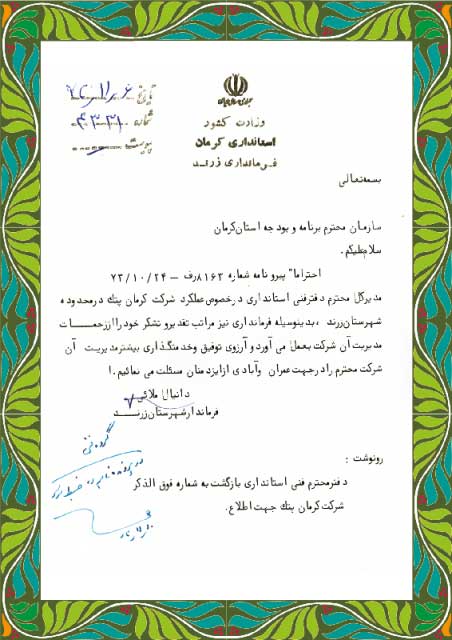 جمهوری اسلامی ایران
وزارت کشور
استانداری کرمان
فرمانداری زرند
تاریخ ۷۳/۱۱/۶
شماره ۴۳۳۱
پیوست
بسمه تعالی
سازمان محترم برنامه و بودجه استان کرمان
سلام علیکم.
احتراما" پیرو نامه شماره ۸۱۶۳رف – ۷۳/۱۰/۲۴
مدیرکل محترم دفترفنی استانداری درخصوص عملکرد شرکت کرمان پتک درمحدوده
شهرستان زرند ، بدینوسیله فرمانداری نیز مراتب تقدیرو تشکر خود را از زحمات
مدیریت آن شرکت بعمل می آورد و آرزوی توفیق وخدمتگذاری بیشترمدیریت آن
شرکت محترم را درجهت عمران وآبادی ازایزدمنان مسئلت می نمائیم.ا
دانیال ملائی
فرماندارشهرستان زرند
گروه فنی
رونوشت :
دفترمحترم فنی استانداری بازگشت به شماره فوق الذکر
شرکت کرمان پتک جهت اطلاع.